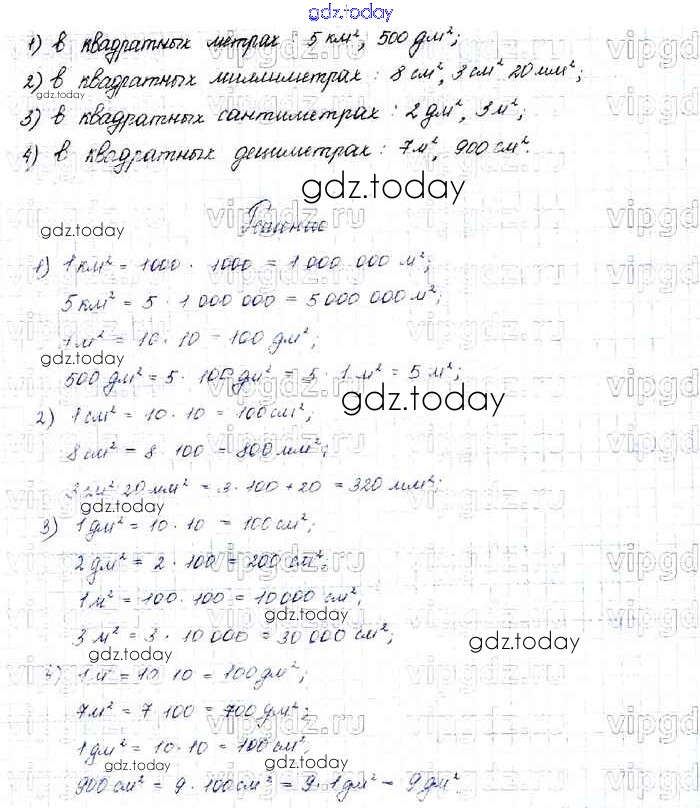 gdz.today
1) в квадратных метрах : 5 км², 500 дм²;
2) в квадратных миллиметрах : 8 см², 3 см² 20 мм²;
gdz.today
3) в квадратных сантиметрах : 2 дм², 3 м²;
4) в квадратных дециметрах : 7 м², 900 см².
gdz.today
gdz.today
Решение
1) 1 км² = 1000 · 1000 = 1 000 000 м²;
5 км² = 5 · 1 000 000 = 5 000 000 м²;
1 м² = 10 · 10 = 100 дм²;
gdz.today
500 дм² = 5 · 100 дм² = 5 · 1 м² = 5 м²;
gdz.today
2) 1 см² = 10 · 10 = 100 см²;
8 см² = 8 · 100 = 800 мм²;
3 см² 20 мм² = 3 · 100 + 20 = 320 мм²;
gdz.today
3) 1 дм² = 10 · 10 = 100 см²;
2 дм² = 2 · 100 = 200 см².
1 м² = 100 · 100 = 10 000 см²;
gdz.today
3 м² = 3 · 10 000 = 30 000 см²;
gdz.today
gdz.today
4) 1 м² = 10 10 = 100 дм²;
7 м² = 7 100 = 700 дм²;
1 дм² = 10 · 10 = 100 см²,
gdz.today
gdz.today
900 см² = 9 · 100 см² = 9 · 1 дм² = 9 дм².
vipgdz.ru